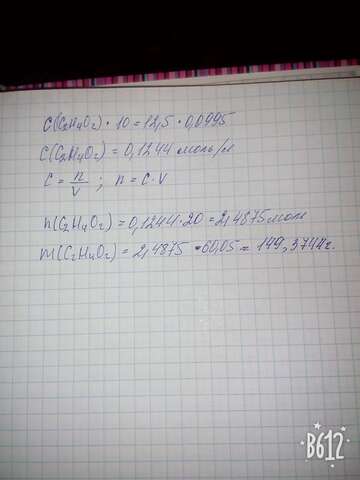 C(C₂H₄O₂) · 10 = 12,5 · 0,0995
C(C₂H₄O₂) = 0,1244 моль/л
C = n/V ; n = C · V
n(C₂H₄O₂) = 0,1244 · 20 = 2,4875 моль
m(C₂H₄O₂) = 2,4875 · 60,05 = 149,3744г.
B612